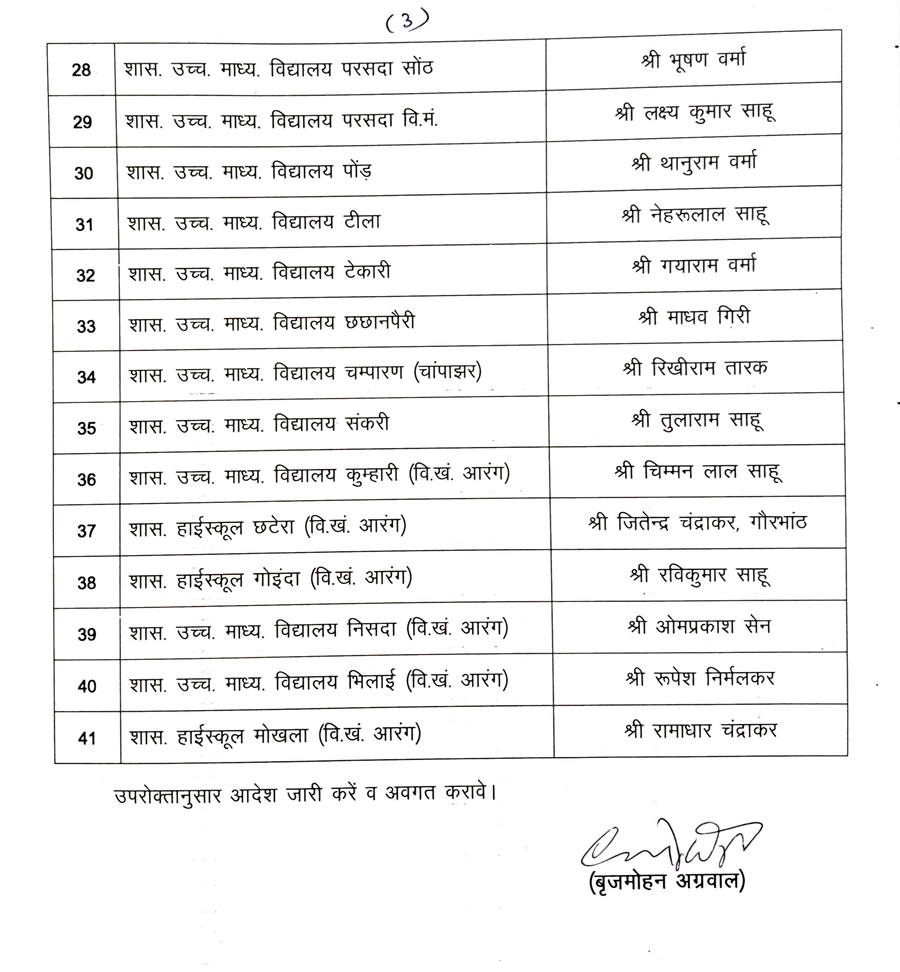 (3)
28 शास. उच्च. माध्य. विद्यालय परसदा सोंठ श्री भूषण वर्मा
29 शास. उच्च. माध्य. विद्यालय परसदा वि.मं. श्री लक्ष्य कुमार साहू
30 शास. उच्च. माध्य. विद्यालय पोंड़ श्री थानुराम वर्मा
31 शास. उच्च. माध्य. विद्यालय टीला श्री नेहरूलाल साहू
32 शास. उच्च. माध्य. विद्यालय टेकारी श्री गयाराम वर्मा
33 शास. उच्च. माध्य. विद्यालय छछानपैरी श्री माधव गिरी
34 शास. उच्च. माध्य. विद्यालय चम्पारण (चांपाझर) श्री रिखीराम तारक
35 शास. उच्च. माध्य. विद्यालय संकरी श्री तुलाराम साहू
36 शास. उच्च. माध्य. विद्यालय कुम्हारी (वि.खं. आरंग) श्री चिम्मन लाल साहू
37 शास. हाईस्कूल छटेरा (वि.खं. आरंग) श्री जितेन्द्र चंद्राकर, गौरभांठ
38 शास. हाईस्कूल गोइंदा (वि.खं. आरंग) श्री रविकुमार साहू
39 शास. उच्च. माध्य. विद्यालय निसदा (वि.खं. आरंग) श्री ओमप्रकाश सेन
40 शास. उच्च. माध्य. विद्यालय भिलाई (वि.खं. आरंग) श्री रूपेश निर्मलकर
41 शास. हाईस्कूल मोखला (वि.खं. आरंग) श्री रामाधार चंद्राकर
उपरोक्तानुसार आदेश जारी करें व अवगत करावे।
(बृजमोहन अग्रवाल)